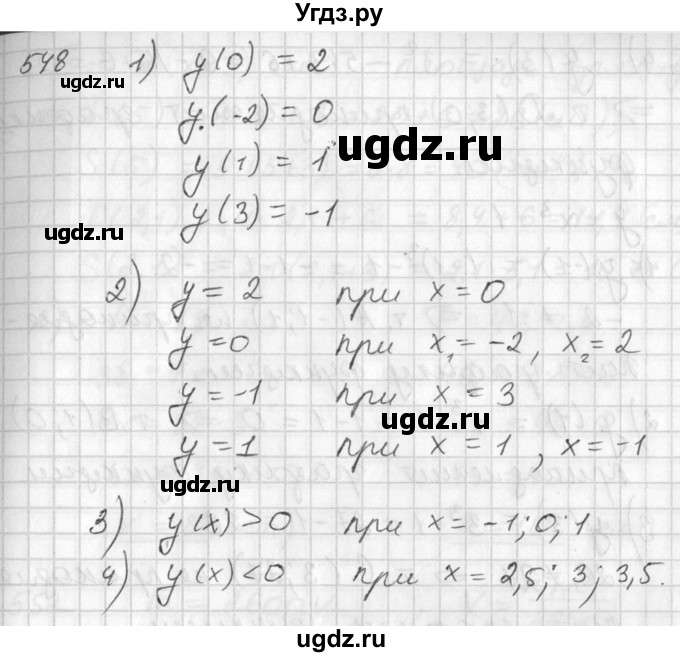 Угдз.ру
548 1) y(0) = 2
ugdz.ru
y(-2) = 0
ugdz.ru
y(1) = 1
y(3) = -1
ugdz.ru
2) y = 2 при x = 0
y = 0 при x₁ = -2, x₂ = 2
y = -1 при x = 3
ugdz.ru
y = 1 при x = 1, x = -1
ugdz.ru
3) y(x) > 0 при x = -1; 0; 1
4) y(x) < 0 при x = 2,5; 3; 3,5.
ugdz.ru
ugdz.ru